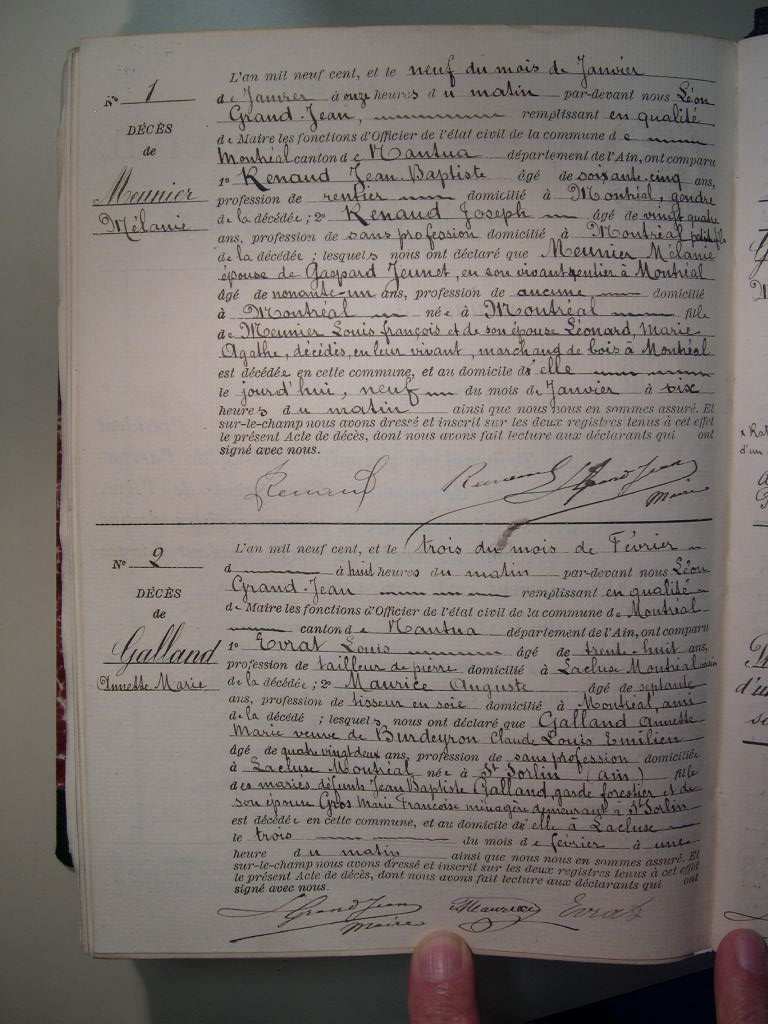 N° 1
DÉCÈS
de
Meunier
Mélanie
L'an mil neuf cent, et le neuf du mois de Janvier
de Janvier à onze heures du matin par-devant nous Léon
Grand-Jean, remplissant en qualité
de Maire les fonctions d'Officier de l'état civil de la commune de
Montréal canton de Nantua département de l'Ain, ont comparu
1° Renaud Jean Baptiste âgé de soixante-cinq ans,
profession de rentier domicilié à Montréal, gendre
de la décédée ; 2° Renaud Joseph âgé de vingt quatre
ans, profession de sans profession domicilié à Montréal petit fils
de la décédée ; lesquels nous ont déclaré que Meunier Mélanie
épouse de Gaspard Jeunet, en son vivant rentier à Montréal
âgé de nonante-un ans, profession de aucune, domicilié
à Montréal née à Montréal fille
de Meunier Louis françois et de son épouse Léonard, Marie
Agathe, décédés, en leur vivant, marchand de bois à Montréal
est décédée en cette commune, et au domicile d'elle
le jourd'hui, neuf du mois de Janvier à six
heures du matin ainsi que nous nous en sommes assuré. Et
sur-le-champ nous avons dressé et inscrit sur les deux registres tenus à cet effet
le présent Acte de décès, dont nous avons fait lecture aux déclarants qui ont
signé avec nous.
Renaud Renaud J. Grand Jean
Maire
N° 2
DÉCÈS
de
Galland
Annette Marie
L'an mil neuf cent, et le trois du mois de Février
d à huit heures du matin par-devant nous Léon
Grand-Jean remplissant en qualité
de Maire les fonctions d'Officier de l'état civil de la commune de Montréal
canton de Nantua département de l'Ain, ont comparu
1° Evrat Louis âgé de trente-huit ans,
profession de tailleur de pierre domicilié à Lacluse Montréal
de la décédée ; 2° Maurice Auguste âgé de septante
ans, profession de tisseur en soie domicilié à Montréal, ami
de la décédé ; lesquels nous ont déclaré que Galland Annette
Marie veuve de Burdeyron Claude Louis Emilien
âgé de quatre vingt deux ans, profession de sans profession domiciliée
à Lacluse Montréal née à St Sorlin (Ain) fille
des mariés défunts Jean Baptiste Galland, garde forestier et de
son épouse Gros Marie Francoise ménagère demeurant à St Sorlin
est décédée en cette commune, et au domicile d'elle à Lacluse
le trois du mois de février à une
heure du matin ainsi que nous nous en sommes assuré. Et
sur-le-champ nous avons dressé et inscrit sur les deux registres tenus à cet effet
le présent Acte de décès, dont nous avons fait lecture aux déclarants qui ont
signé avec nous.
Grand Jean Maurice Evrat
Maire